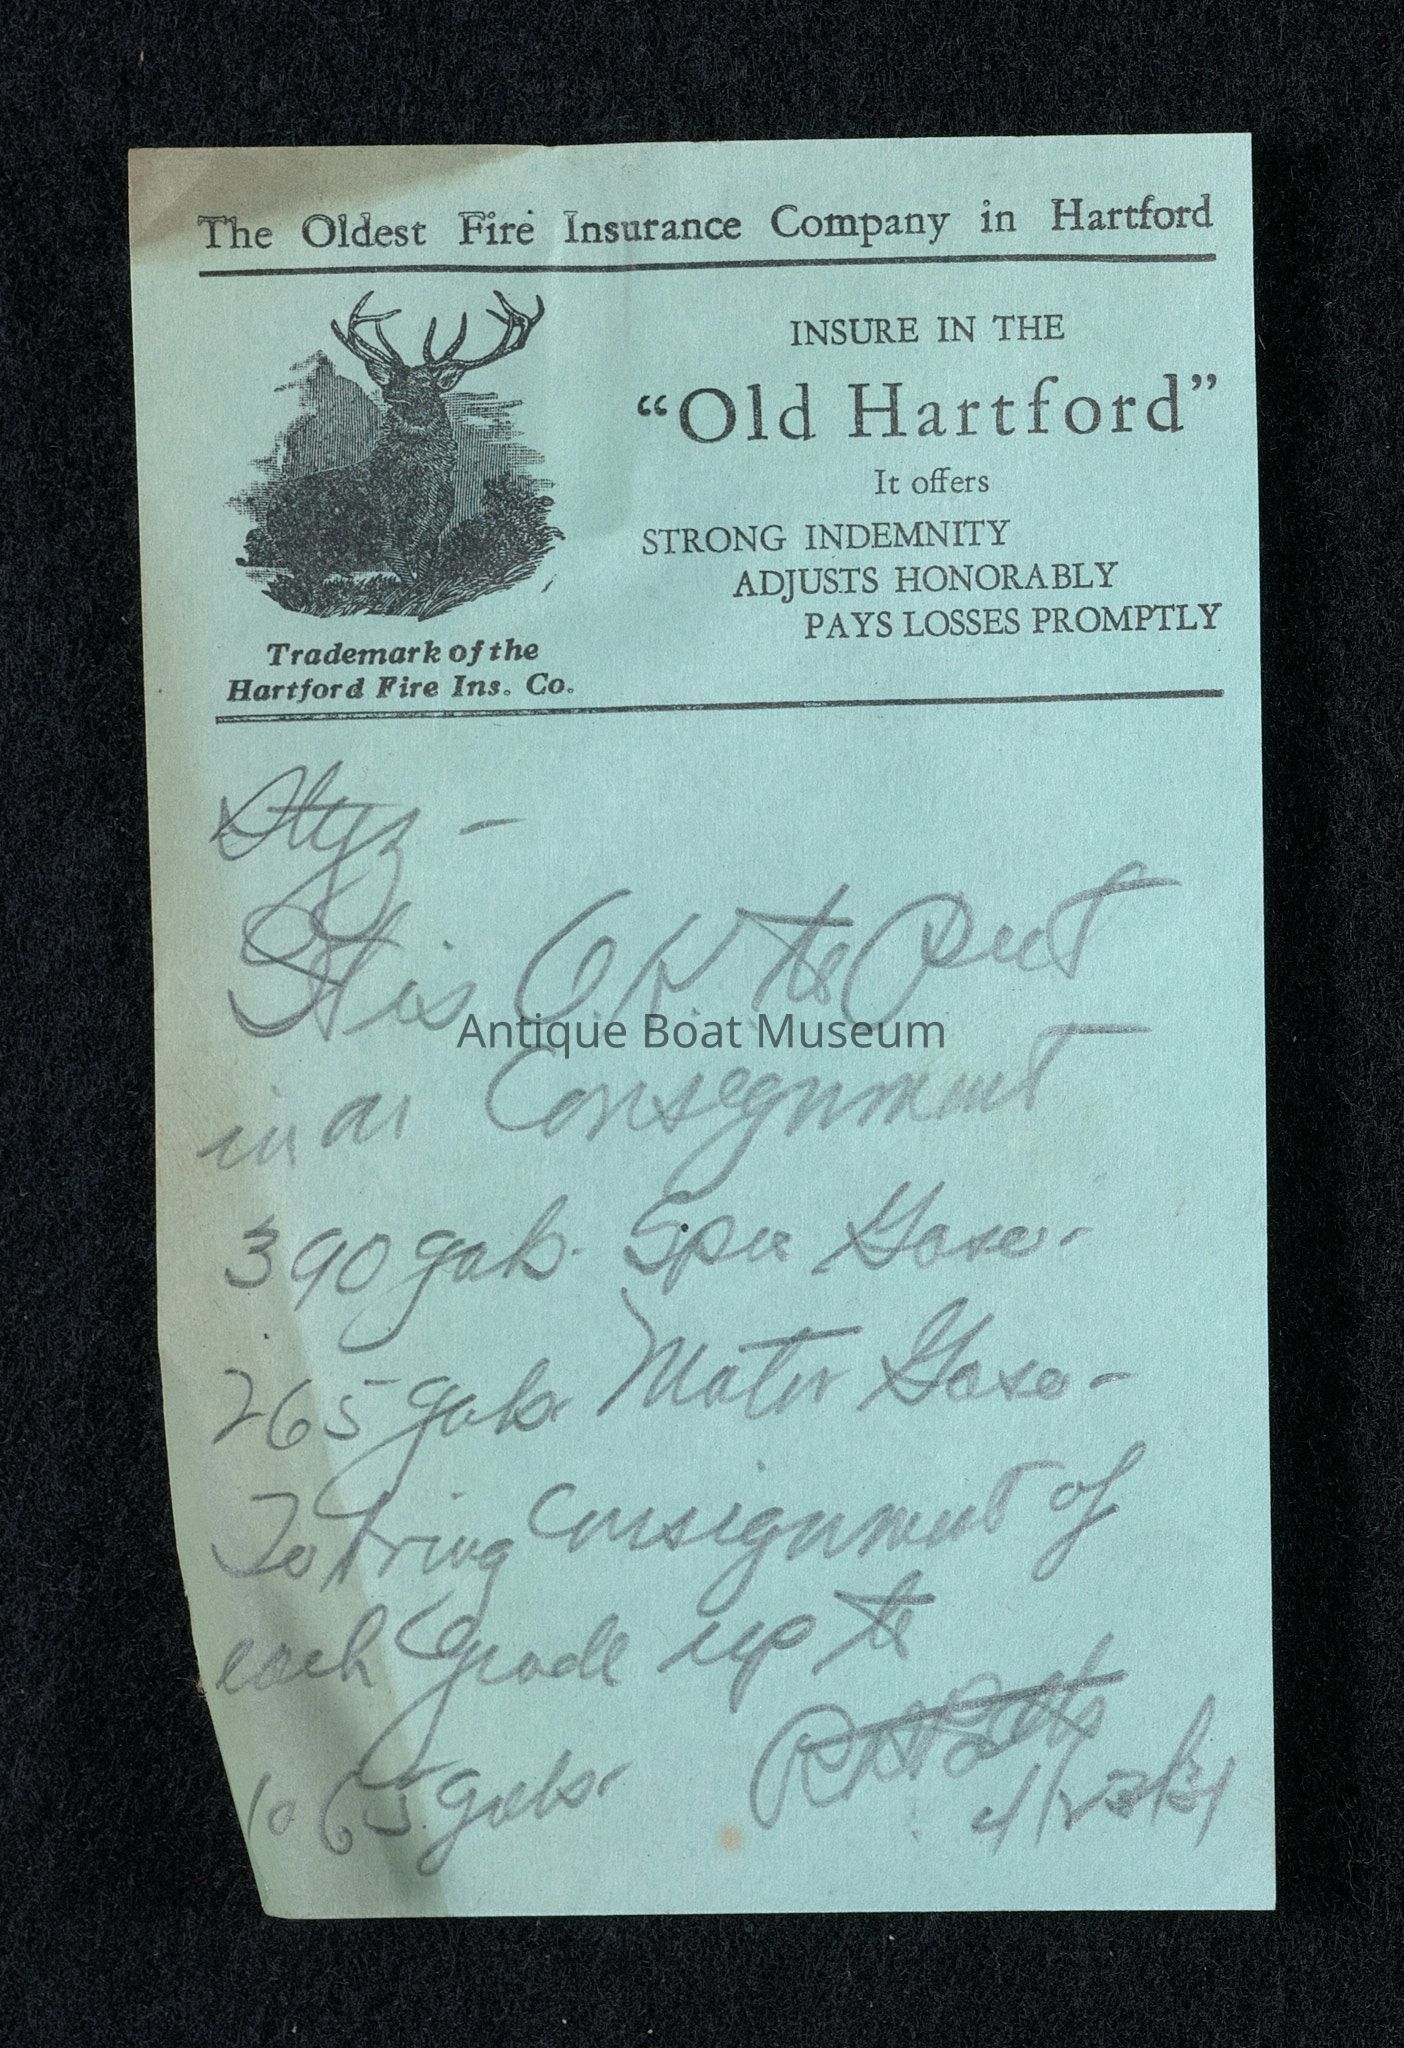 The Oldest Fire Insurance Company in Hartford
INSURE IN THE
"Old Hartford"
It offers
STRONG INDEMNITY
ADJUSTS HONORABLY
PAYS LOSSES PROMPTLY
Trademark of the
Hartford Fire Ins. Co.
is O.K. to Put
in as Consignment
Antique Boat Museum
390 gals. Gaso-
265 gals. Motor Gaso-
To bring consignment of
each grade up to
1065 gals.
4/23/31